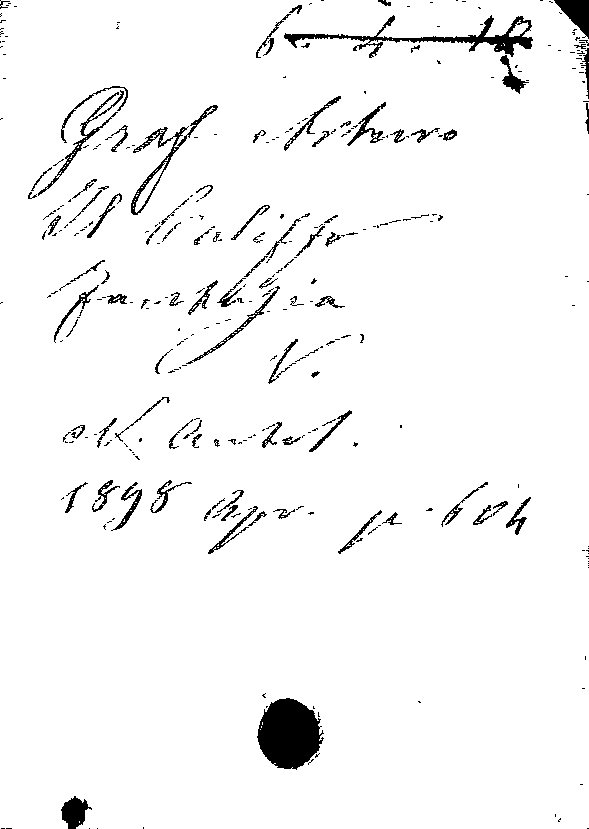 6. 4. 18
Graf Arturo
Il Califfo
Fantasia
V.
N. Antol.
1898 Apr. p. 604